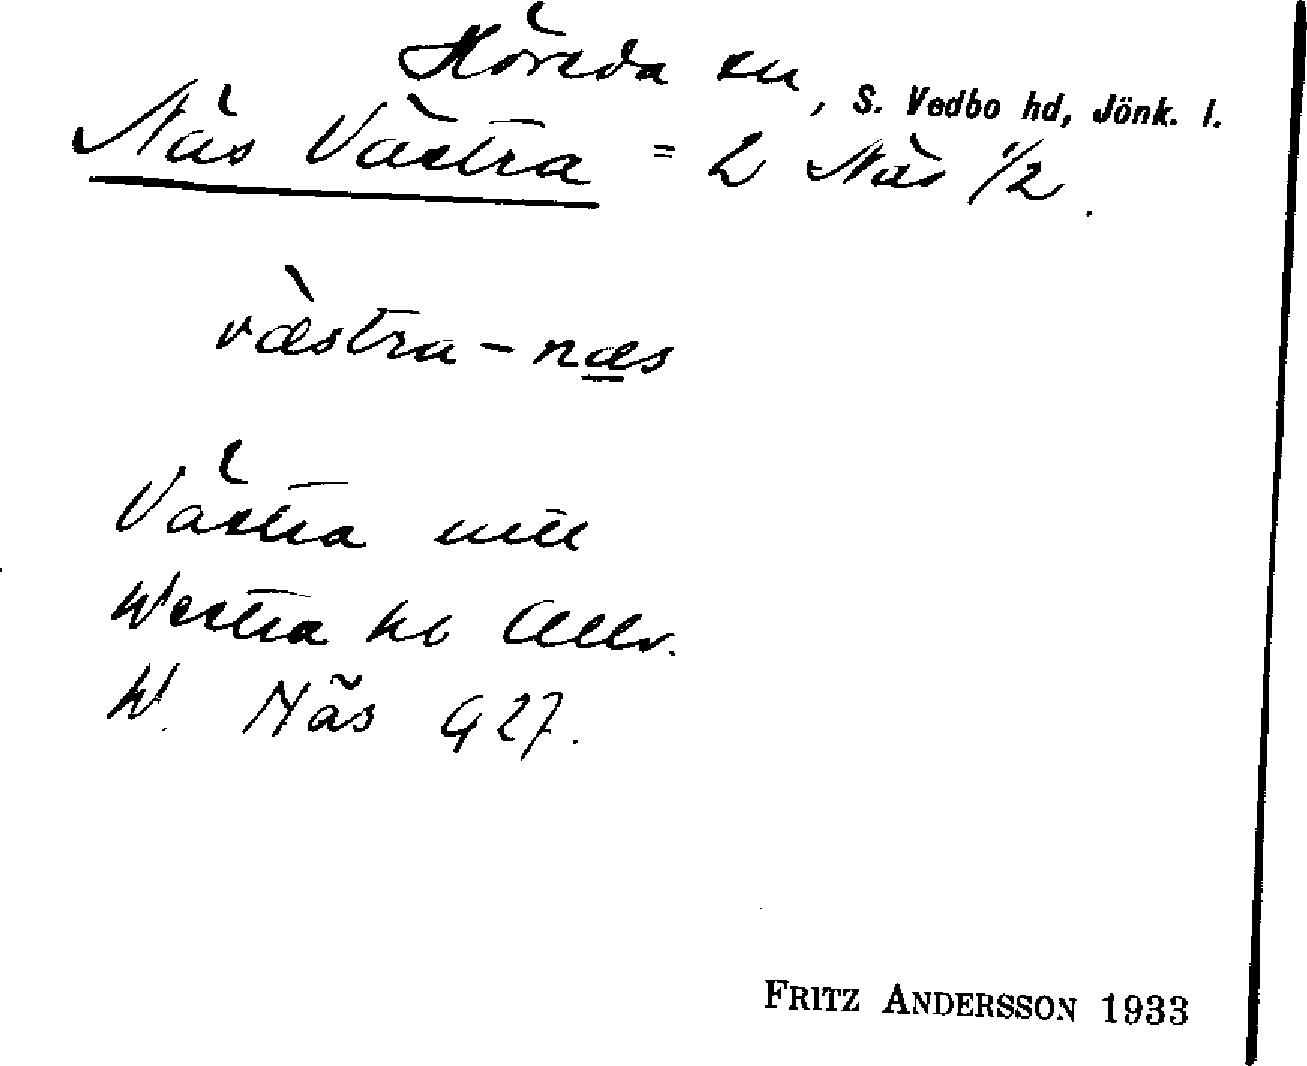 Höreda sn, S. Vedbo hd, Jönk. l.
Näs Västra = 2 Näs 1/2.
væ̀stra-næs
Västra
Westra hb
W. Näs G 27.
FRITZ ANDERSSON 1933